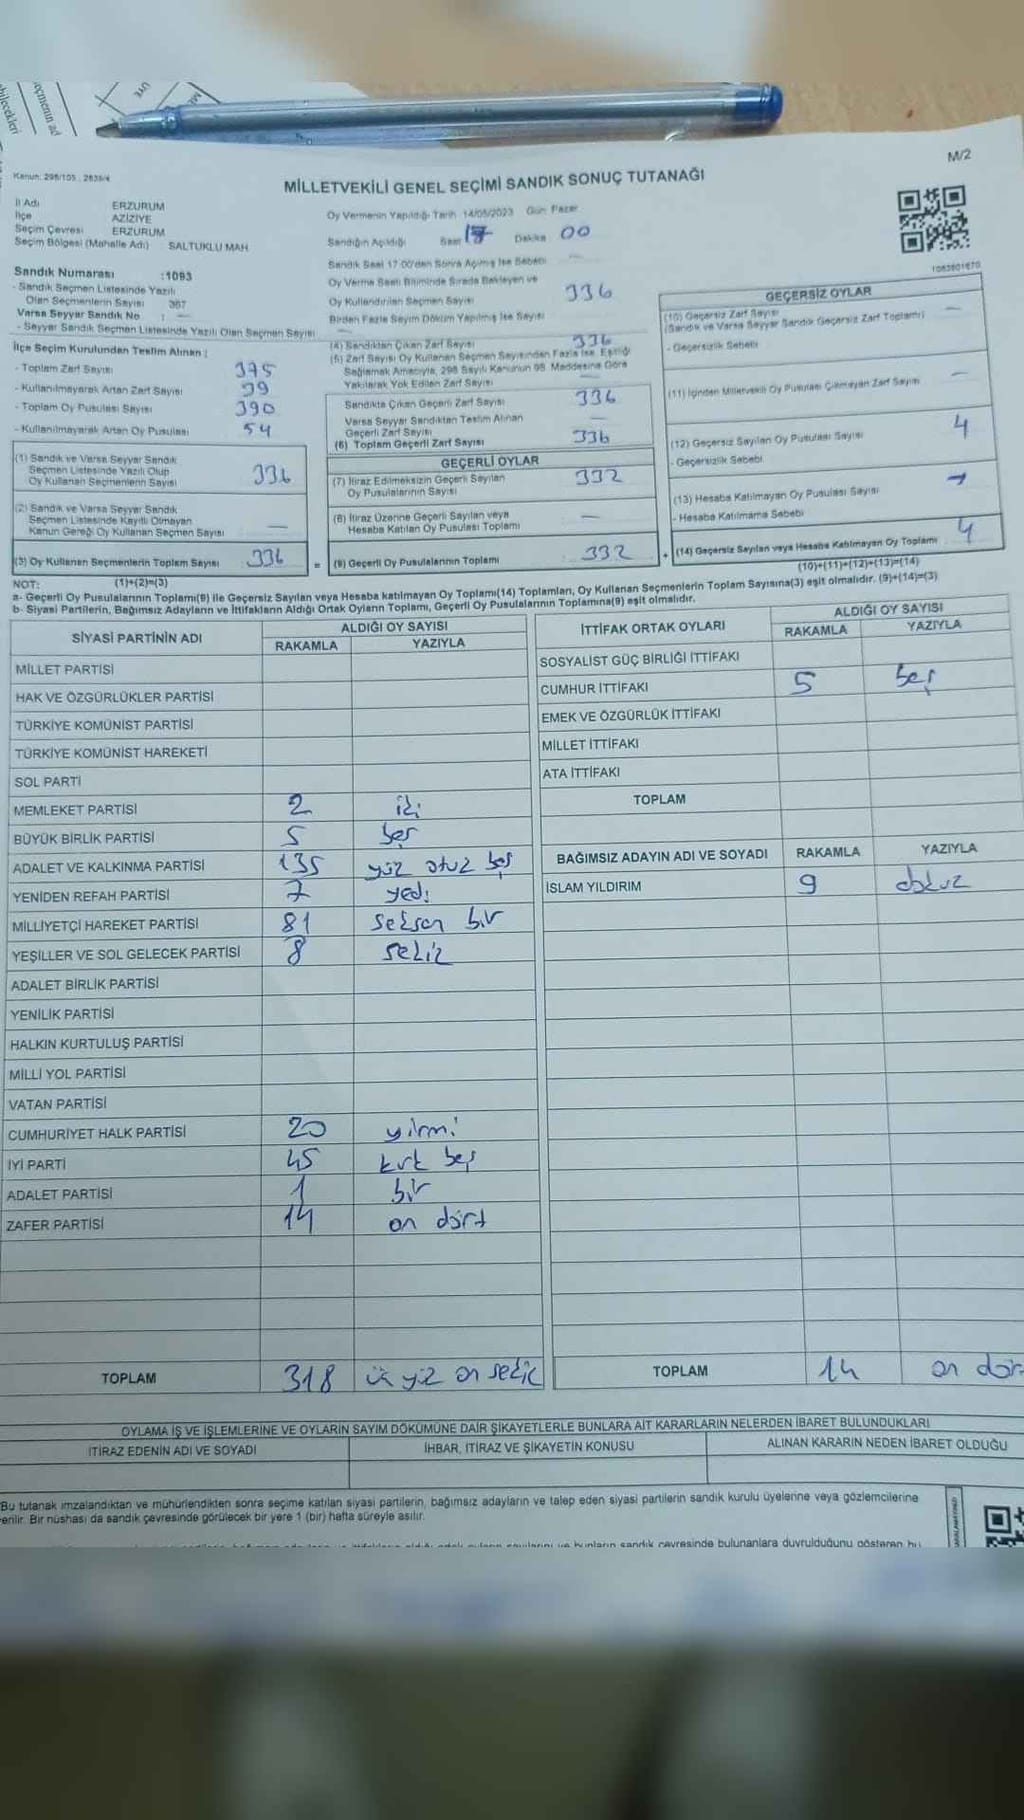 M/2
Kanun: 298/105, 2839/4
MİLLETVEKİLİ GENEL SEÇİMİ SANDIK SONUÇ TUTANAĞI
İl Adı ERZURUM
İlçe AZİZİYE
Seçim Çevresi ERZURUM
Seçim Bölgesi (Mahalle Adı) SALTUKLU MAH
Sandık Numarası :1093
- Sandık Seçmen Listesinde Yazılı
Olan Seçmenlerin Sayısı 367
Varsa Seyyar Sandık No : —
- Seyyar Sandık Seçmen Listesinde Yazılı Olan Seçmen Sayısı
İlçe Seçim Kurulundan Teslim Alınan ;
- Toplam Zarf Sayısı 375
- Kullanılmayarak Artan Zarf Sayısı 39
- Toplam Oy Pusulası Sayısı 390
- Kullanılmayarak Artan Oy Pusulası 54
(1) Sandık ve Varsa Seyyar Sandık
Seçmen Listesinde Yazılı Olup
Oy Kullanan Seçmenlerin Sayısı 336
(2) Sandık ve Varsa Seyyar Sandık
Seçmen Listesinde Kayıtlı Olmayan
Kanun Gereği Oy Kullanan Seçmen Sayısı —
(3) Oy Kullanan Seçmenlerin Toplam Sayısı 336 =
Oy Vermenin Yapıldığı Tarih 14/05/2023 Gün Pazar
Sandığın Açıldığı Saat 17 Dakika 00
Sandık Saat 17:00'den Sonra Açılmış İse Sebebi —
Oy Verme Saati Bitiminde Sırada Bekleyen ve
Oy Kullandırılan Seçmen Sayısı 336
Birden Fazla Sayım Döküm Yapılmış İse Sayısı —
(4) Sandıktan Çıkan Zarf Sayısı 336
(5) Zarf Sayısı Oy Kullanan Seçmen Sayısından Fazla İse, Eşitliği
Sağlamak Amacıyla, 298 Sayılı Kanunun 98. Maddesine Göre
Yakılarak Yok Edilen Zarf Sayısı —
Sandıkta Çıkan Geçerli Zarf Sayısı 336
Varsa Seyyar Sandıktan Teslim Alınan
Geçerli Zarf Sayısı —
(6) Toplam Geçerli Zarf Sayısı 336
GEÇERLİ OYLAR
(7) İtiraz Edilmeksizin Geçerli Sayılan
Oy Pusulalarının Sayısı 332
(8) İtiraz Üzerine Geçerli Sayılan veya
Hesaba Katılan Oy Pusulası Toplamı —
(9) Geçerli Oy Pusulalarının Toplamı 332 +
1083801670
GEÇERSİZ OYLAR
(10) Geçersiz Zarf Sayısı
(Sandık ve Varsa Seyyar Sandık Geçersiz Zarf Toplamı) —
- Geçersizlik Sebebi
(11) İçinden Milletvekili Oy Pusulası Çıkmayan Zarf Sayısı —
(12) Geçersiz Sayılan Oy Pusulası Sayısı 4
- Geçersizlik Sebebi
(13) Hesaba Katılmayan Oy Pusulası Sayısı —
- Hesaba Katılmama Sebebi
(14) Geçersiz Sayılan veya Hesaba Katılmayan Oy Toplamı 4
NOT: (1)+(2)=(3) (10)+(11)+(12)+(13)=(14)
a- Geçerli Oy Pusulalarının Toplamı(9) ile Geçersiz Sayılan veya Hesaba katılmayan Oy Toplamı(14) Toplamları, Oy Kullanan Seçmenlerin Toplam Sayısına(3) eşit olmalıdır. (9)+(14)=(3)
b- Siyasi Partilerin, Bağımsız Adayların ve İttifakların Aldığı Ortak Oyların Toplamı, Geçerli Oy Pusulalarının Toplamına(9) eşit olmalıdır.
SİYASİ PARTİNİN ADI ALDIĞI OY SAYISI
RAKAMLA YAZIYLA
MİLLET PARTİSİ
HAK VE ÖZGÜRLÜKLER PARTİSİ
TÜRKİYE KOMÜNİST PARTİSİ
TÜRKİYE KOMÜNİST HAREKETİ
SOL PARTİ
MEMLEKET PARTİSİ 2 iki
BÜYÜK BİRLİK PARTİSİ 5 beş
ADALET VE KALKINMA PARTİSİ 135 yüz otuz beş
YENİDEN REFAH PARTİSİ 7 yedi
MİLLİYETÇİ HAREKET PARTİSİ 81 seksen bir
YEŞİLLER VE SOL GELECEK PARTİSİ 8 sekiz
ADALET BİRLİK PARTİSİ
YENİLİK PARTİSİ
HALKIN KURTULUŞ PARTİSİ
MİLLİ YOL PARTİSİ
VATAN PARTİSİ
CUMHURİYET HALK PARTİSİ 20 yirmi
İYİ PARTİ 45 kırk beş
ADALET PARTİSİ 1 bir
ZAFER PARTİSİ 14 on dört
TOPLAM 318 üç yüz on sekiz
İTTİFAK ORTAK OYLARI ALDIĞI OY SAYISI
RAKAMLA YAZIYLA
SOSYALİST GÜÇ BİRLİĞİ İTTİFAKI
CUMHUR İTTİFAKI 5 beş
EMEK VE ÖZGÜRLÜK İTTİFAKI
MİLLET İTTİFAKI
ATA İTTİFAKI
TOPLAM
BAĞIMSIZ ADAYIN ADI VE SOYADI RAKAMLA YAZIYLA
İSLAM YILDIRIM 9 dokuz
TOPLAM 14 on dör
OYLAMA İŞ VE İŞLEMLERİNE VE OYLARIN SAYIM DÖKÜMÜNE DAİR ŞİKAYETLERLE BUNLARA AİT KARARLARIN NELERDEN İBARET BULUNDUKLARI
İTİRAZ EDENİN ADI VE SOYADI İHBAR, İTİRAZ VE ŞİKAYETİN KONUSU ALINAN KARARIN NEDEN İBARET OLDUĞU
Bu tutanak imzalandıktan ve mühürlendikten sonra seçime katılan siyasi partilerin, bağımsız adayların ve talep eden siyasi partilerin sandık kurulu üyelerine veya gözlemcilerine
erilir. Bir nüshası da sandık çevresinde görülecek bir yere 1 (bir) hafta süreyle asılır.
sandık çevresinde bulunanlara duyrulduğunu gösteren bu